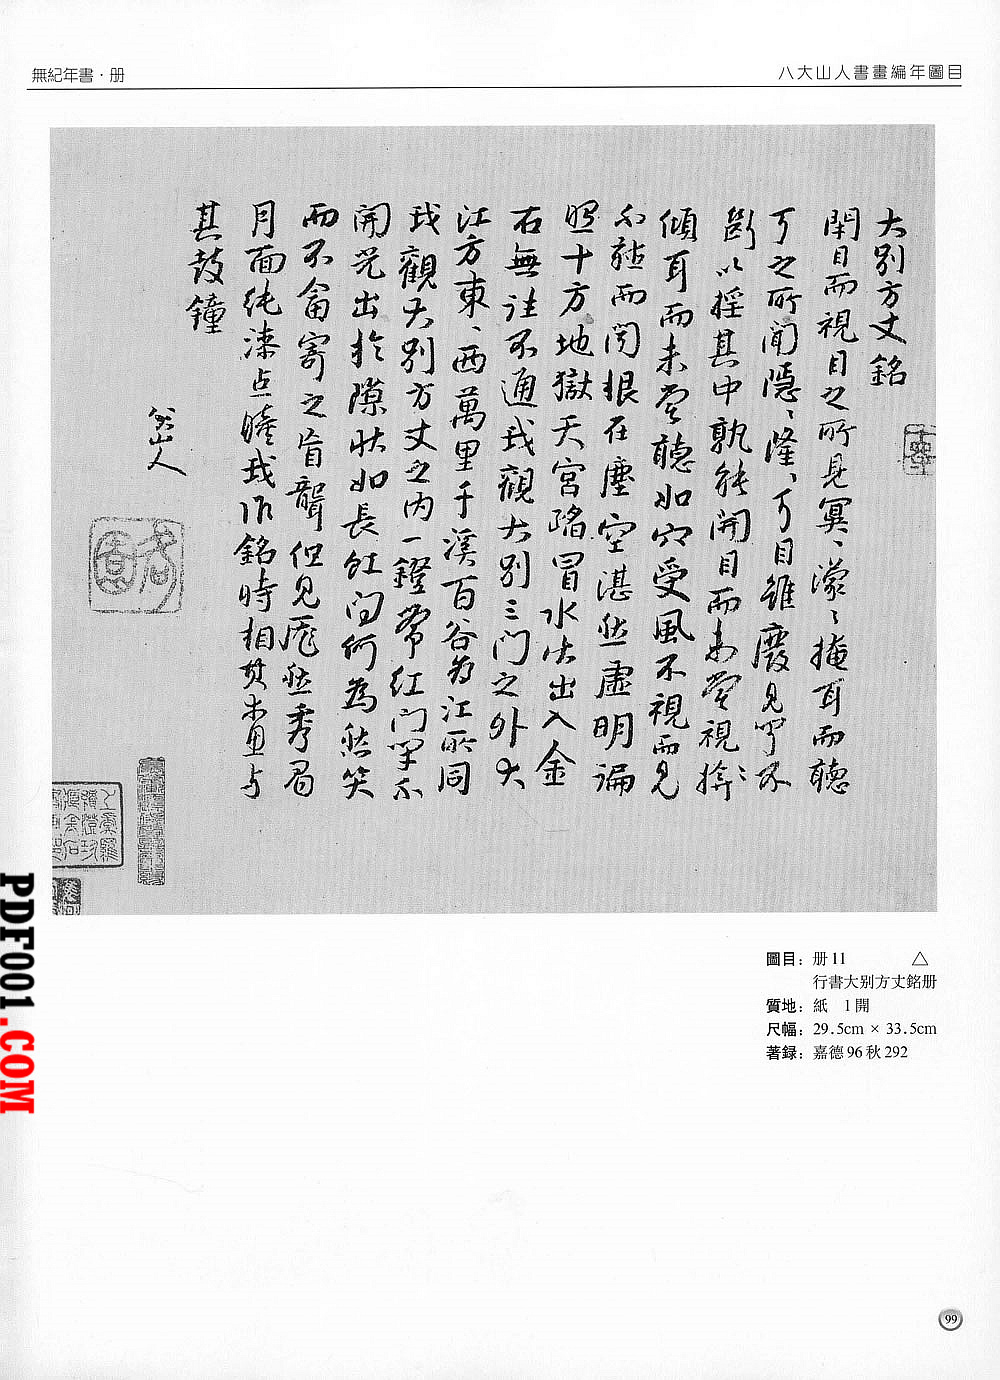 無紀年書·册
八大山人書畫編年圖目
大別方丈銘
閉目而視目之所見冥、濛、掩耳而聽
耳之所聞隱、隆、耳目雖廢見聞不
斷以搖其中孰能開目而未嘗視
傾耳而未嘗聽如穴受風不視而見
不聽而聞根在塵空湛然虛明遍
照十方地獄天宮蹈冒水火出入金
石無往不通我觀大別三門之外大
江方東、西萬里千溪百谷為江所同
我觀大別方丈之內一鐙常紅門閉不
開光出於隙狀如長虹問何為然笑
而不畣寄之盲聾但見厖然秀眉
月面純漆点瞳我作銘時相其木魚与
其鼓鐘
八大山人
圖目：册11 △
行書大别方丈銘册
質地：紙 1開
尺幅：29.5cm × 33.5cm
著録：嘉德96秋292
99
PDF001.COM